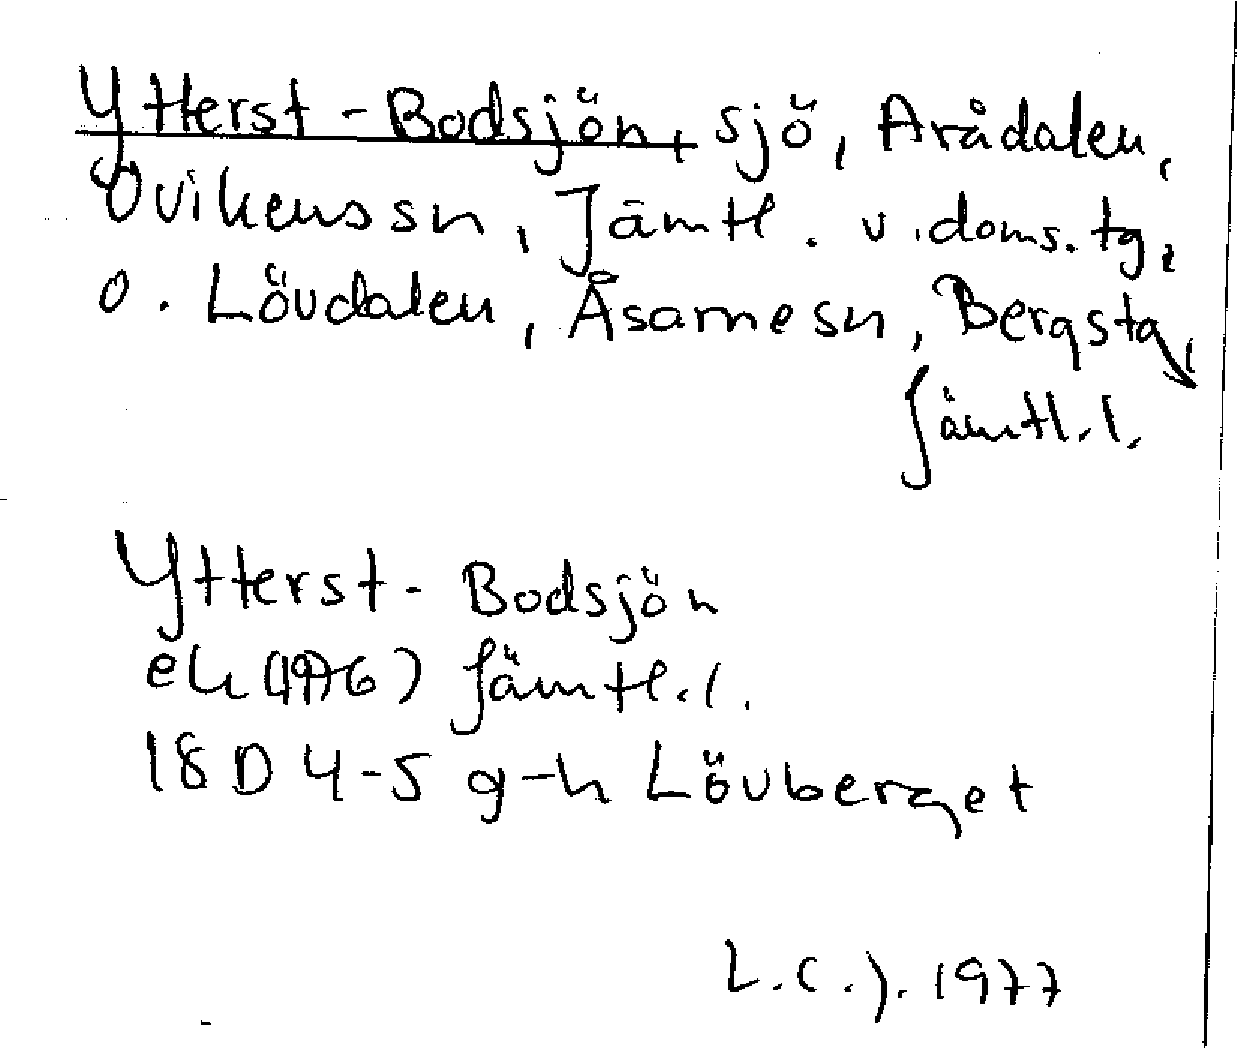 Ytterst-Bodsjön, sjö, Arådalen,
Ovikens sn, Jämtl. v. doms. tg,
o. Lövdalen, Åsarne sn, Bergs tg,
Jämtl. l.
Ytterst-Bodsjön
ek (1976) Jämtl. l.
18 D 4-5 g-h Lövberget
L.C.J. 1977